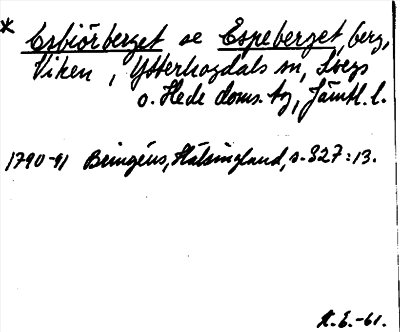 * Esbiörberget se Espeberget, berg,
Viken, Ytterhogdals sn, Svegs
o. Hede doms. tg, Jämtl. l.
1790-91 Bringéus, Hälsingland, s. 327:13.
H.E.-61.